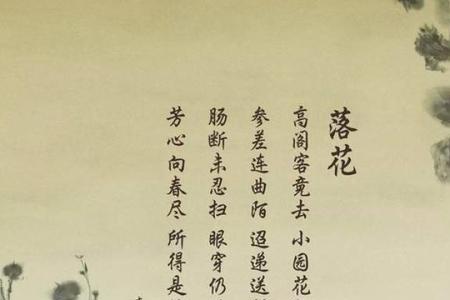 落花
高阁客竟去 小园花
参差连曲陌 迢递送
肠断未忍扫 眼穿仍
芳心向春尽 所得是